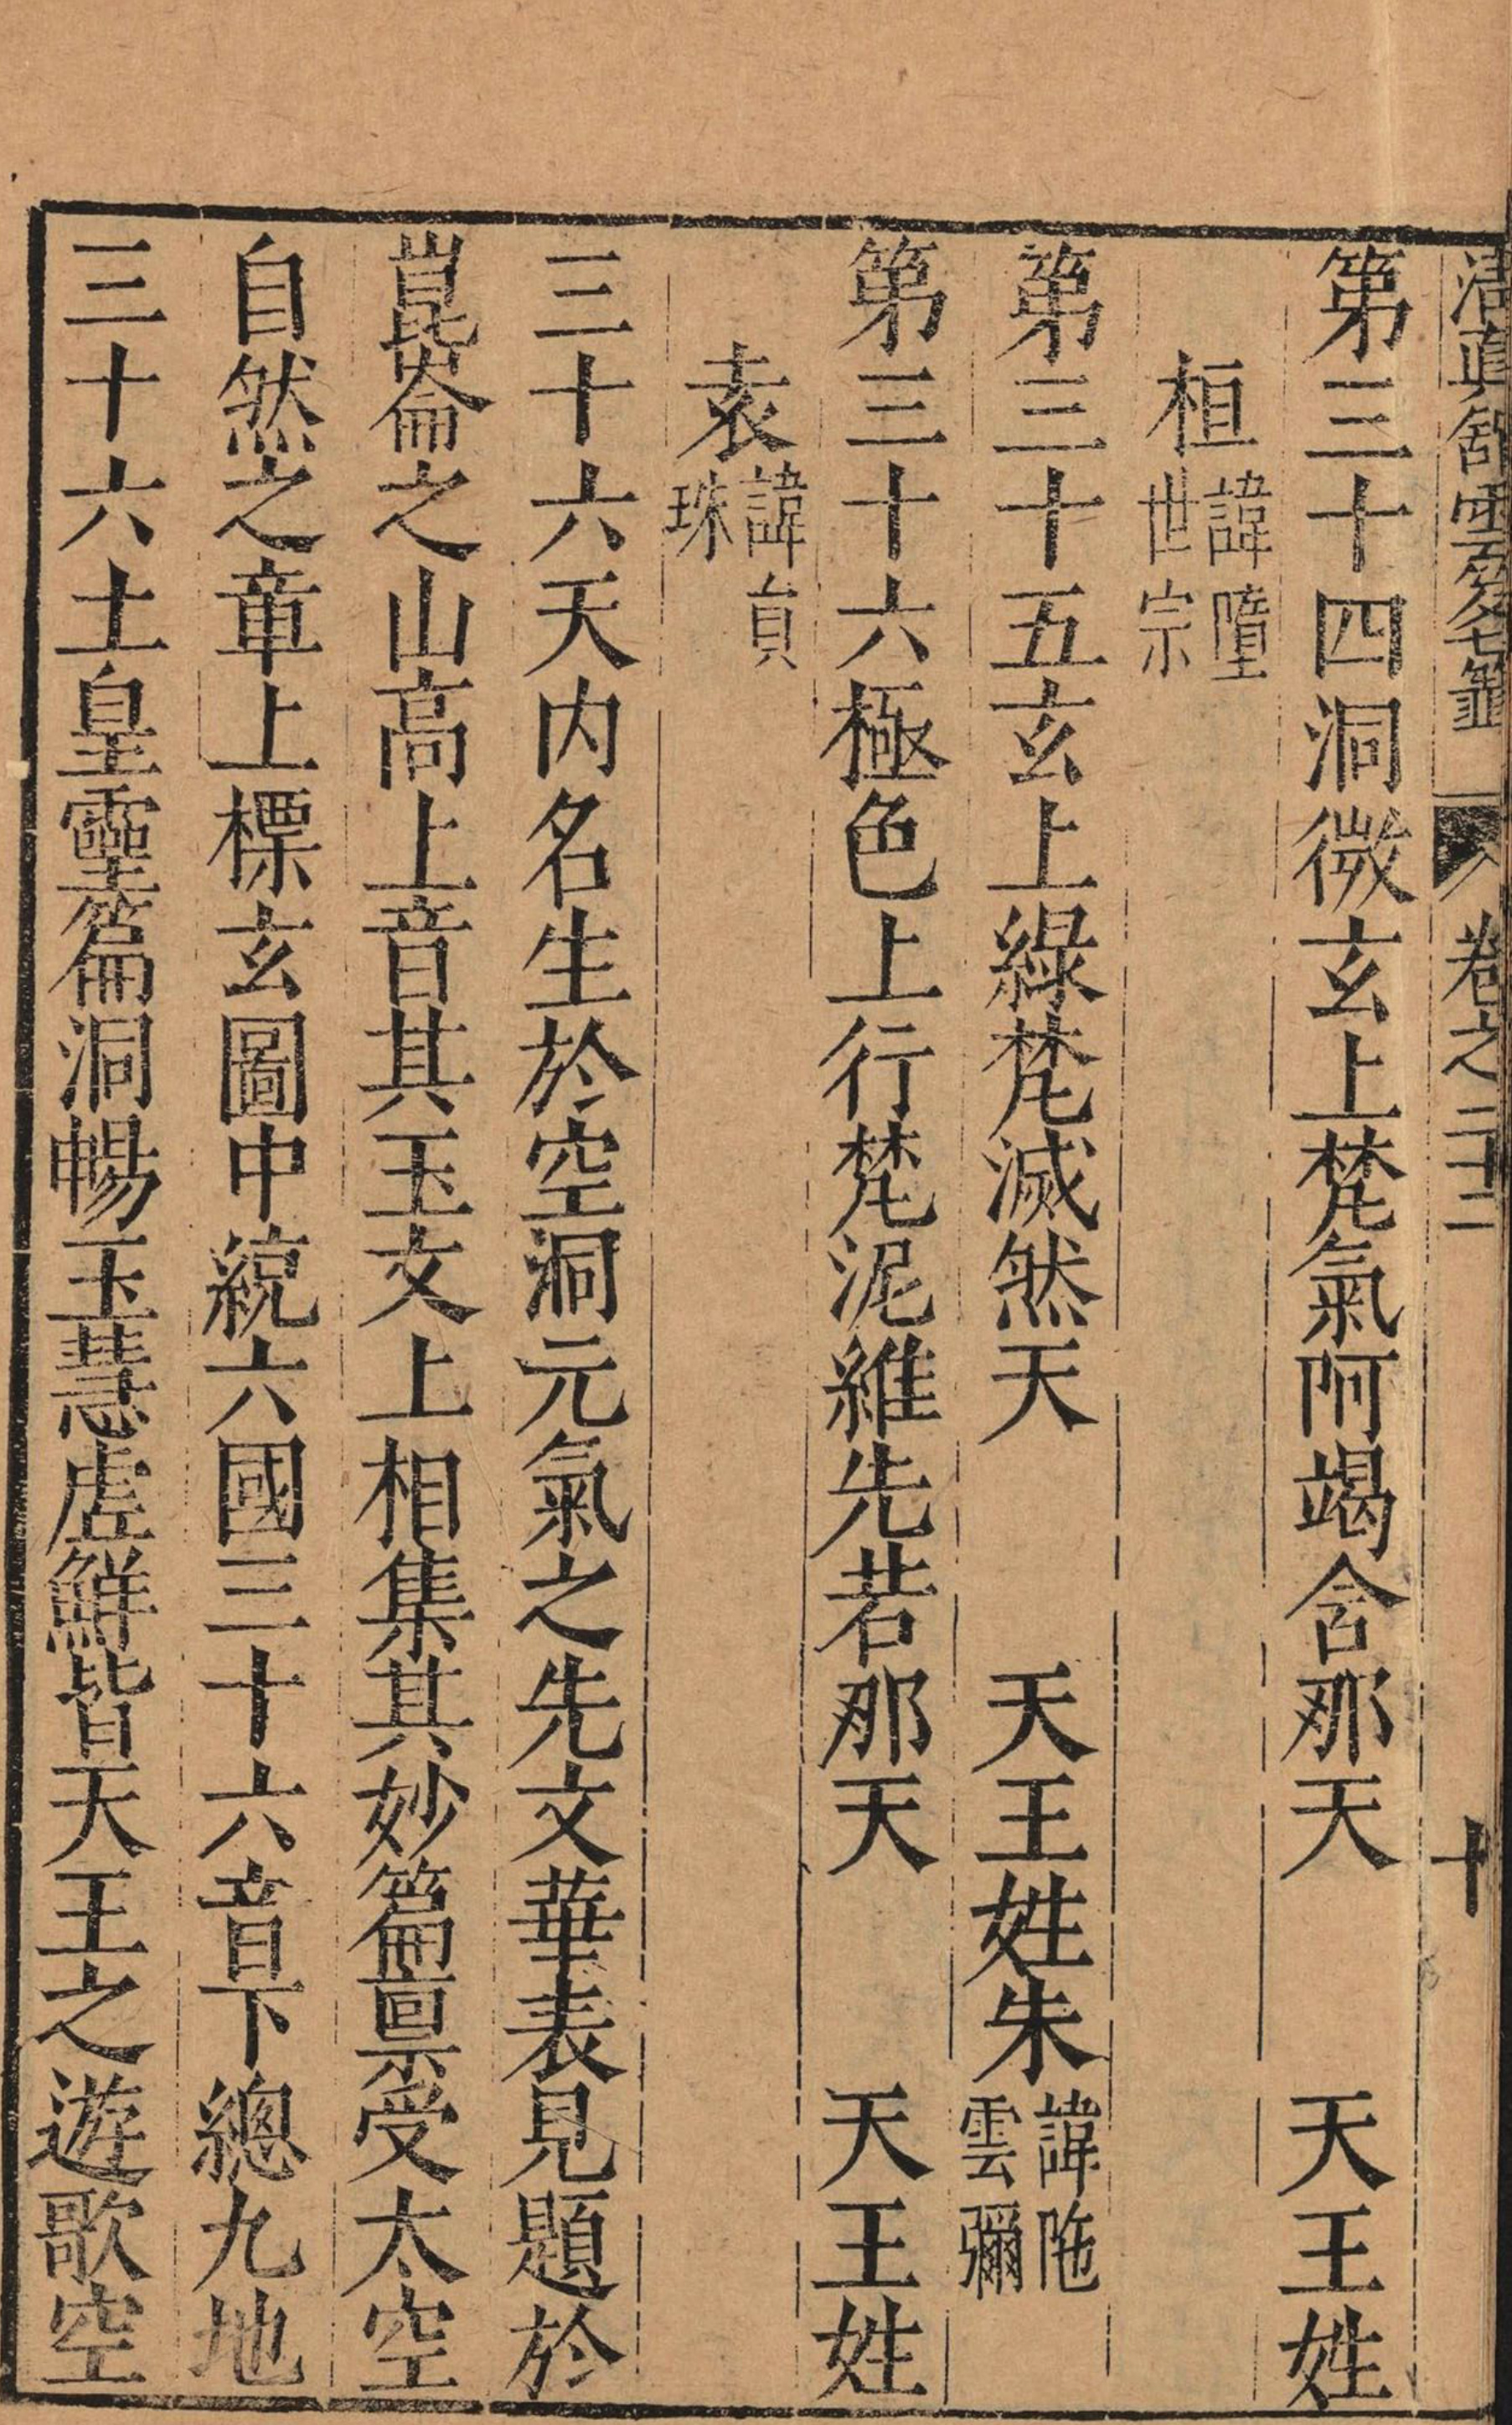 清真舘雲笈七籤　卷之二十二　十
第三十四洞微玄上梵氣阿竭含那天　天王姓
桓諱墮世宗
第三十五玄上綠梵滅然天　天王姓朱諱陁雲彌
第三十六極色上行梵泥維先若那天　天王姓
袁諱貟珠
三十六天内名生於空洞元氣之先文華表見題於
崑崙之山高上音其玉文上相集其妙篇禀受太空
自然之章上標玄圖中統六國三十六音下總九地
三十六土皇靈篇洞暢玉慧虗鮮皆天王之遊歌空